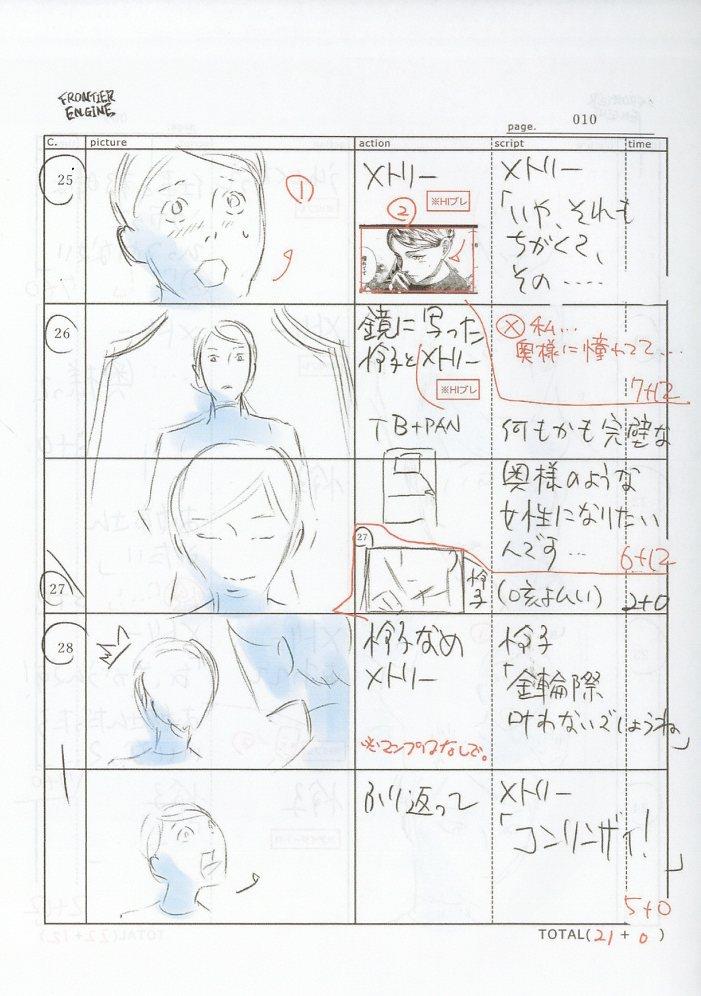 FRONTIER
ENGINE
page. 010
C. picture action script time
25
①
メトリー
※HIブレ
②
メトリー
「いや、それも
ちがくて、
その……
26
鏡に写った
怜子とメトリー
※HIブレ
TB+PAN
Ⓧ 私…
奥様に憧れてて…
7+12
何もかも完璧な
奥様のような
女性になりたい
んです…
6+12
27
27
怜子
(咳ばらい)
2+0
28
怜子なめ
メトリー
怜子
「金輪際
叶わないでしょうね」
ふり返って
メトリー
「コンリンザイ!」
5+0
TOTAL(21 + 0)